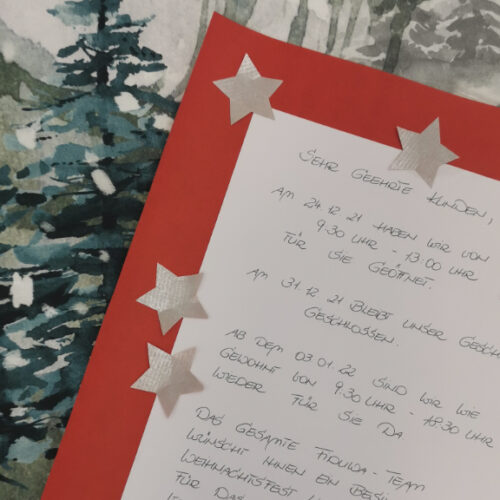 SEHR GEEHRTE KUNDEN,
AM 24.12.21 HABEN WIR VON
9.30 UHR - 13.00 UHR
FÜR SIE GEÖFFNET.
AM 31.12.21 BLEIBT UNSER GESCH
GESCHLOSSEN.
AB DEM 03.01.22 SIND WIR WIE
GEWOHNT VON 9.30 UHR - 18.30 UHR
WIEDER FÜR SIE DA
DAS GESAMTE FIDUWA-TEAM
WÜNSCHT IHNEN EIN BESI
WEIHNACHTSFEST
FÜR DAS